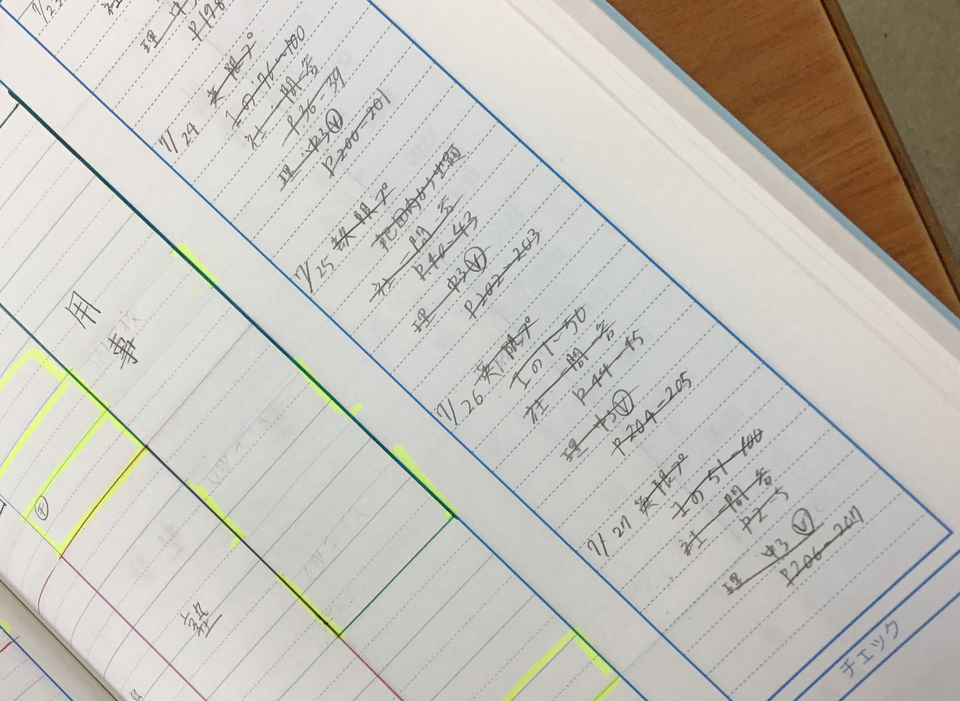 7/23
理 中
P198
7/24 英 眼プ
Iの76-100
社 一問一答
P36-39
理 中3Ⓥ
P200-201
7/25 英 眼プ
社 一問一答
P40-43
理 中3Ⓥ
P202-203
7/26 英 眼プ
Iの1-50
社 一問一答
P44-45
理 中3Ⓥ
P204-205
7/27 英 眼プ
Iの51-100
社 一問一答
P2-5
理 中3Ⓥ
P206-207
用事
塾
チェック